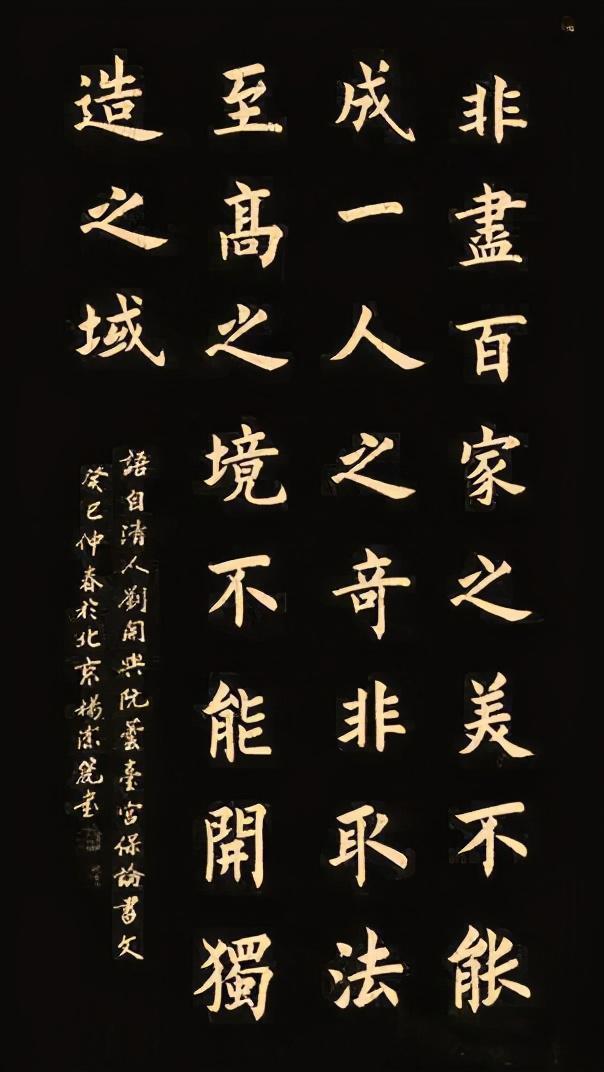 非盡百家之美不能
成一人之奇非取法
至高之境不能開獨
造之域
語自清人劉開與阮芸臺宮保論書文
癸巳仲春於北京楊潔篪書